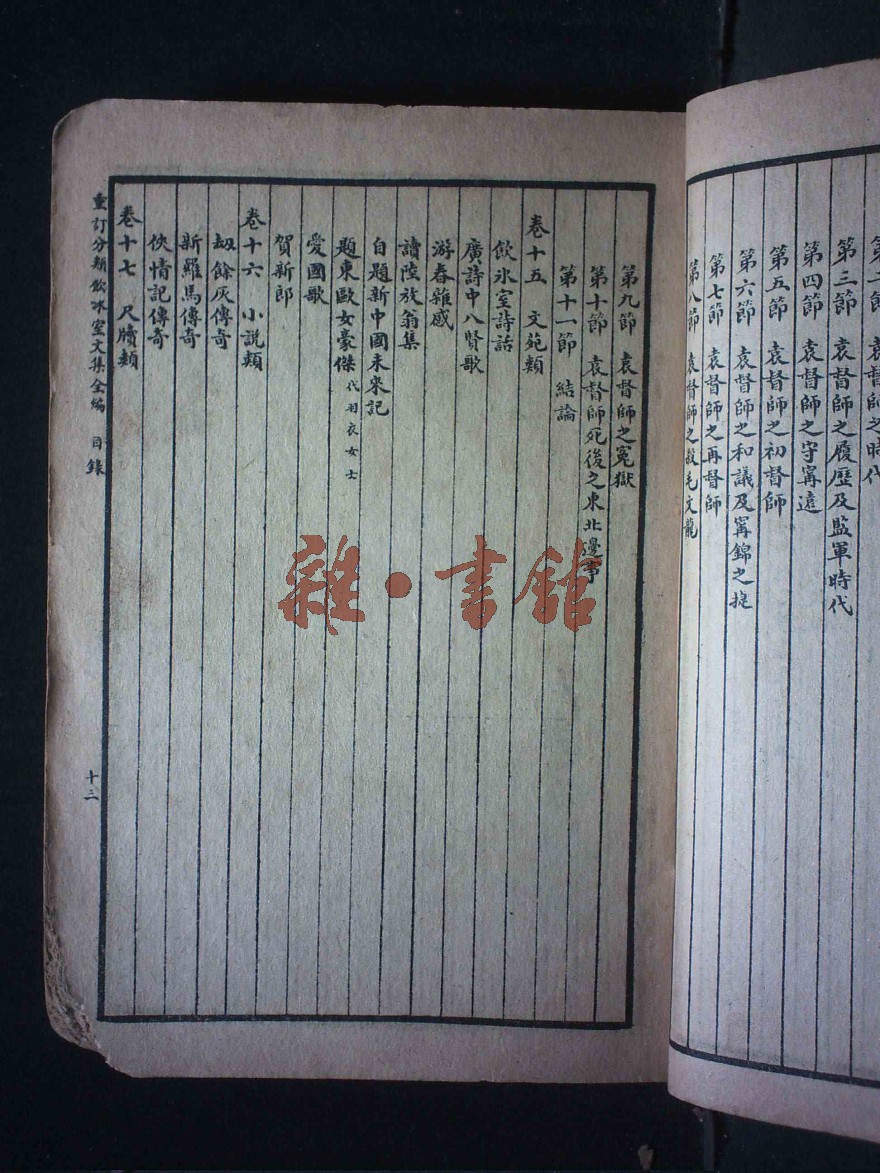 第二節　袁督師之時代
第三節　袁督師之履歷及監軍時代
第四節　袁督師之守甯遠
第五節　袁督師之初督師
第六節　袁督師之和議及甯錦之捷
第七節　袁督師之再督師
第八節　袁督師之殺毛文龍
第九節　袁督師之冤獄
第十節　袁督師死後之東北邊事
第十一節　結論
卷十五　文苑類
飲氷室詩話
廣詩中八賢歌
游春雜感
讀陸放翁集
自題新中國未來記
題東歐女豪傑代羽衣女士
愛國歌
賀新郎
卷十六　小說類
刼餘灰傳奇
新羅馬傳奇
俠情記傳奇
卷十七　尺牘類
重訂分類飲冰室文集全編　目錄
十三
雜·書館